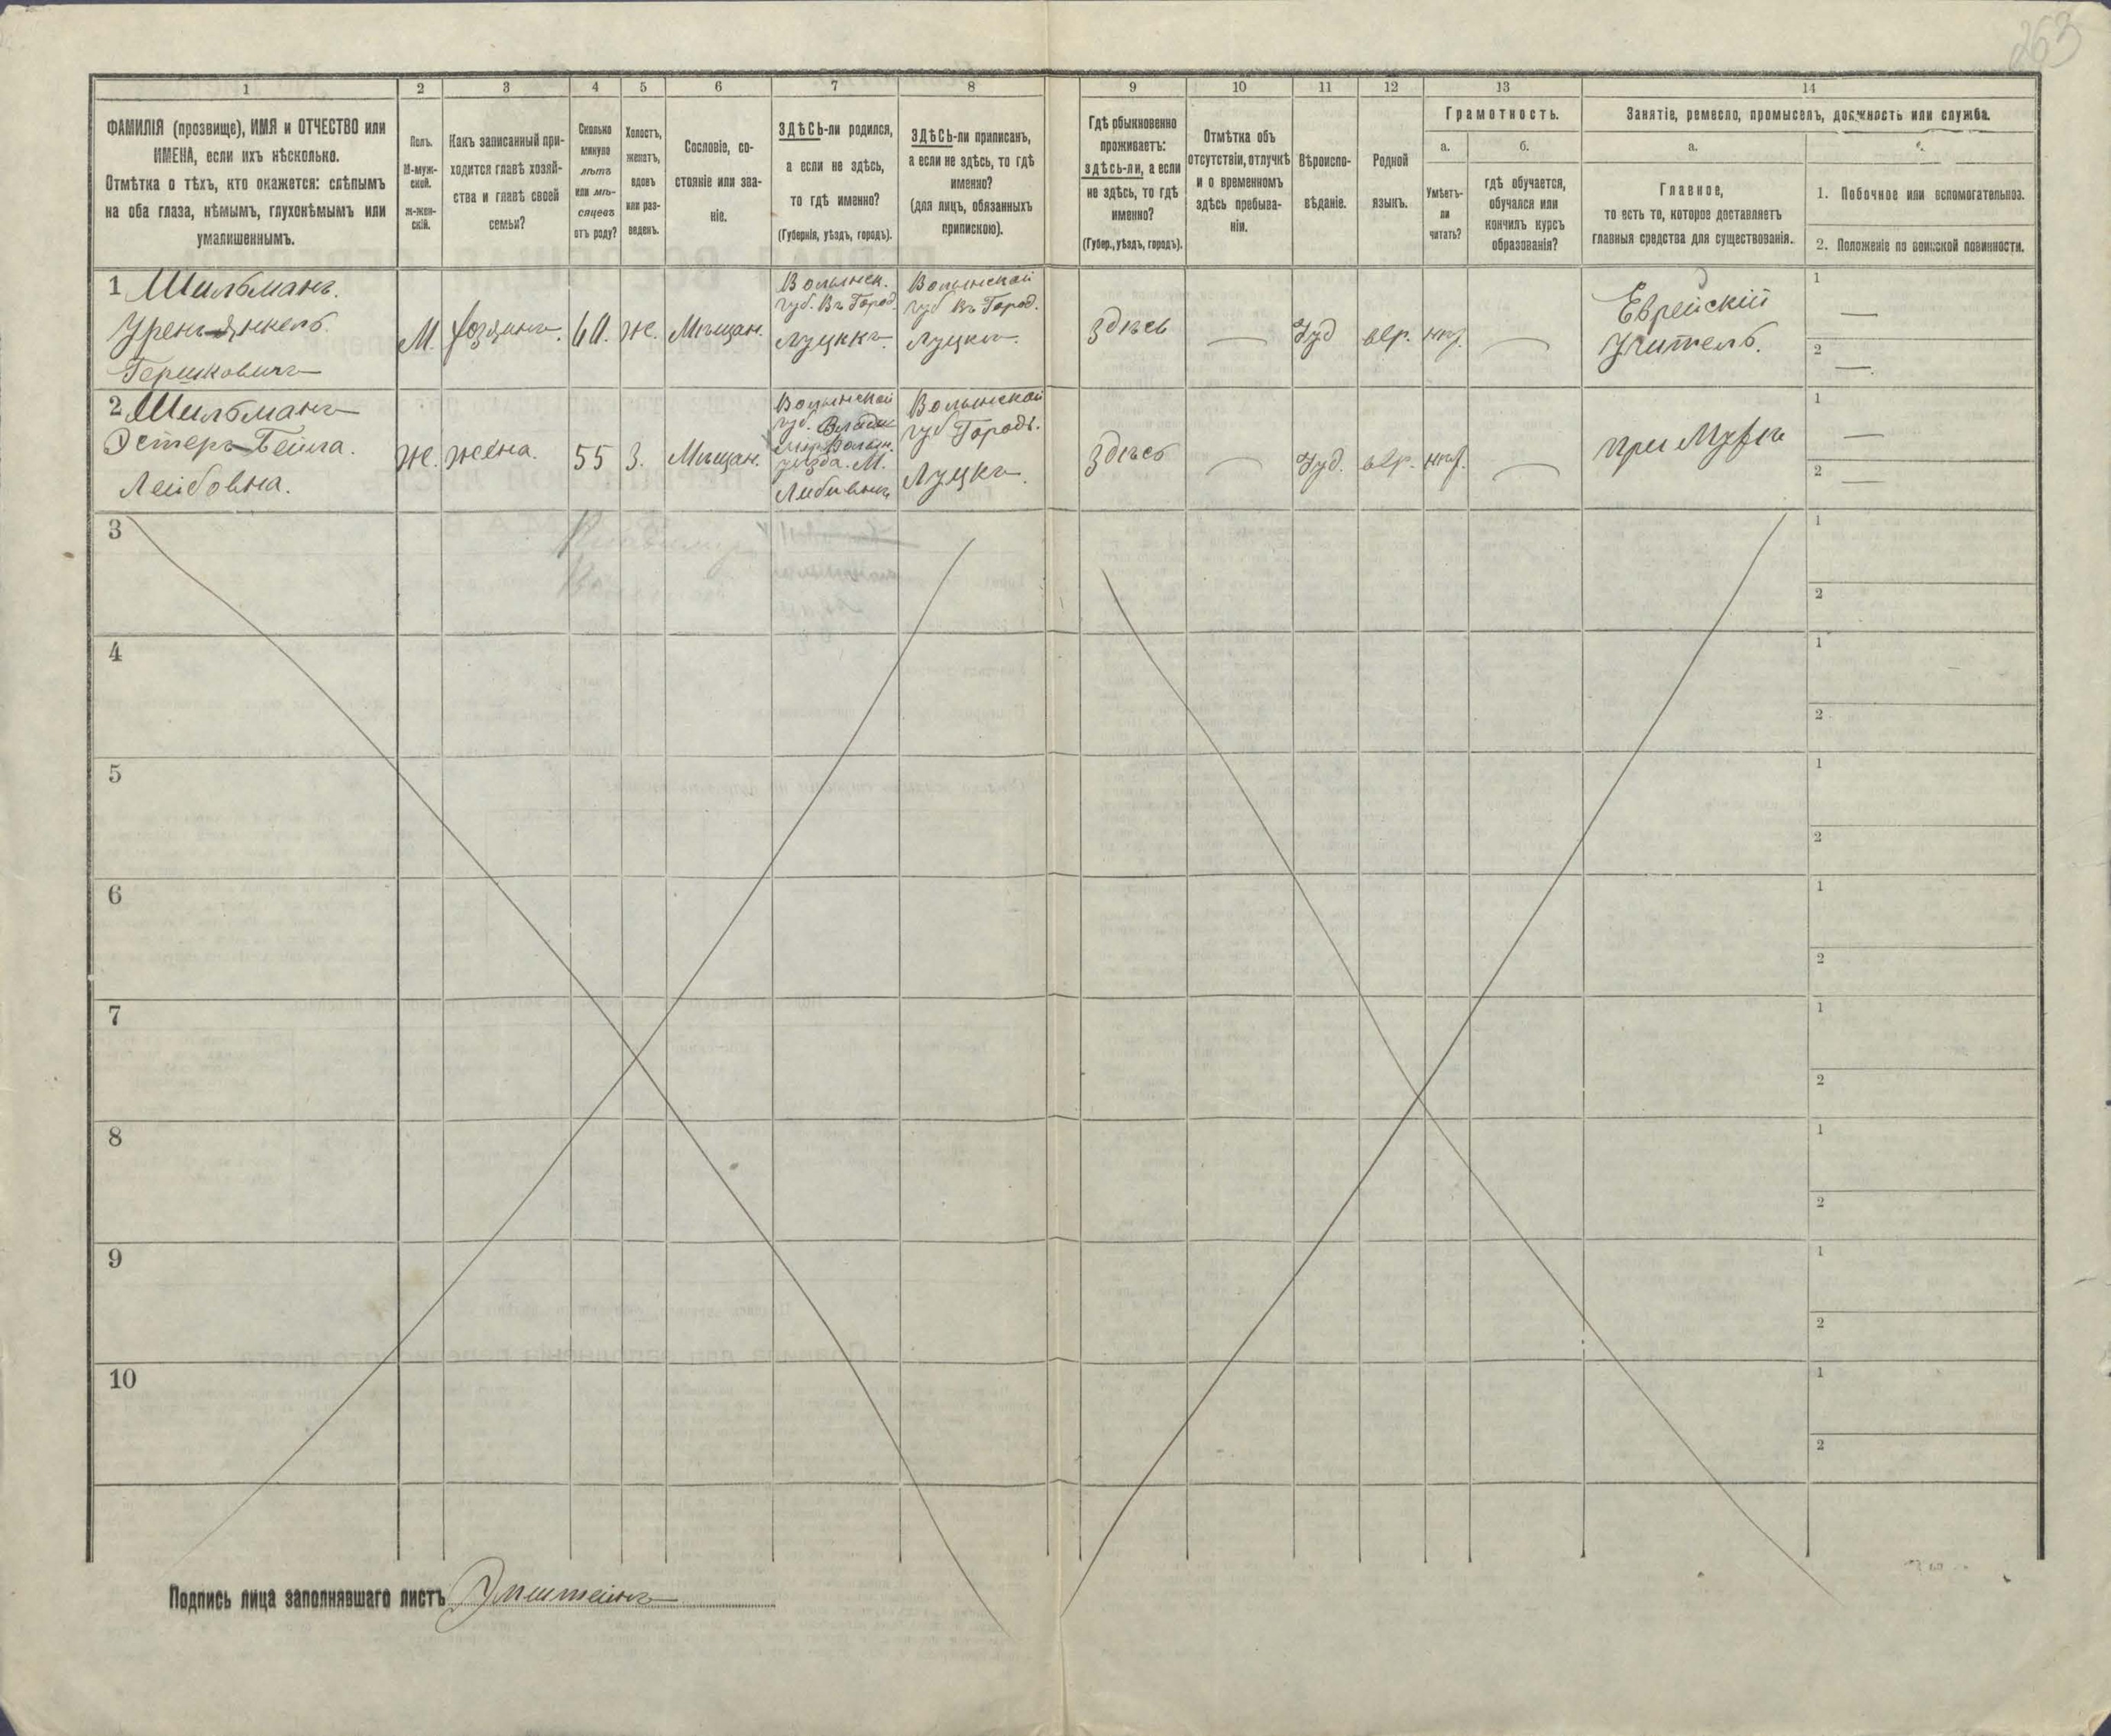 263
1
2
3
4
5
6
7
8
9
10
11
12
13
14
ФАМИЛІЯ (прозвище), ИМЯ и ОТЧЕСТВО или
ИМЕНА, если ихъ нѣсколько.
Отмѣтка о тѣхъ, кто окажется: слѣпымъ
на оба глаза, нѣмымъ, глухонѣмымъ или
умалишеннымъ.
Полъ.
М-муж-
ской.
ж-жен-
скій.
Какъ записанный при-
ходится главѣ хозяй-
ства и главѣ своей
семьи?
Сколько
минуло
лѣтъ
или мѣ-
сяцевъ
отъ роду?
Холостъ,
женатъ,
вдовъ
или раз-
веденъ.
Сословіе, со-
стояніе или зва-
ніе.
ЗДѢСЬ-ли родился,
а если не здѣсь,
то гдѣ именно?
(Губернія, уѣздъ, городъ).
ЗДѢСЬ-ли приписанъ,
а если не здѣсь, то гдѣ
именно?
(для лицъ, обязанныхъ
припискою).
Гдѣ обыкновенно
проживаетъ:
здѣсь-ли, а если
не здѣсь, то гдѣ
именно?
(Губер., уѣздъ, городъ).
Отмѣтка объ
отсутствіи, отлучкѣ
и о временномъ
здѣсь пребыва-
ніи.
Вѣроиспо-
вѣданіе.
Родной
языкъ.
Грамотность.
а.
Умѣетъ-
ли
читать?
б.
гдѣ обучается,
обучался или
кончилъ курсъ
образованія?
Занятіе, ремесло, промыселъ, должность или служба.
а.
Главное,
то есть то, которое доставляетъ
главныя средства для существованія.
1. Побочное или вспомогательное.
2. Положеніе по воинской повинности.
1 Шильманъ.
Гершковичъ
М.
60.
Ж.
Мѣщан.
Волынск.
губ. Въ Город.
Луцкѣ
Волынской
губ Въ Город.
Луцкѣ
Здѣсь
Іуд
евр.
Еврейскій
Учитель.
1
2
2 Шильманъ
Эстеръ-Бейла.
Лейбовна.
Ж.
жена.
55
З.
Мѣщан.
Волынской
губ.
уѣзда. М.
Волынской
губ Городъ.
Луцкъ
Здѣсь
Іуд.
евр.
при Мужѣ
1
2
3
1
2
4
1
2
5
1
2
6
1
2
7
1
2
8
1
2
9
1
2
10
1
2
Подпись лица заполнявшаго листъ